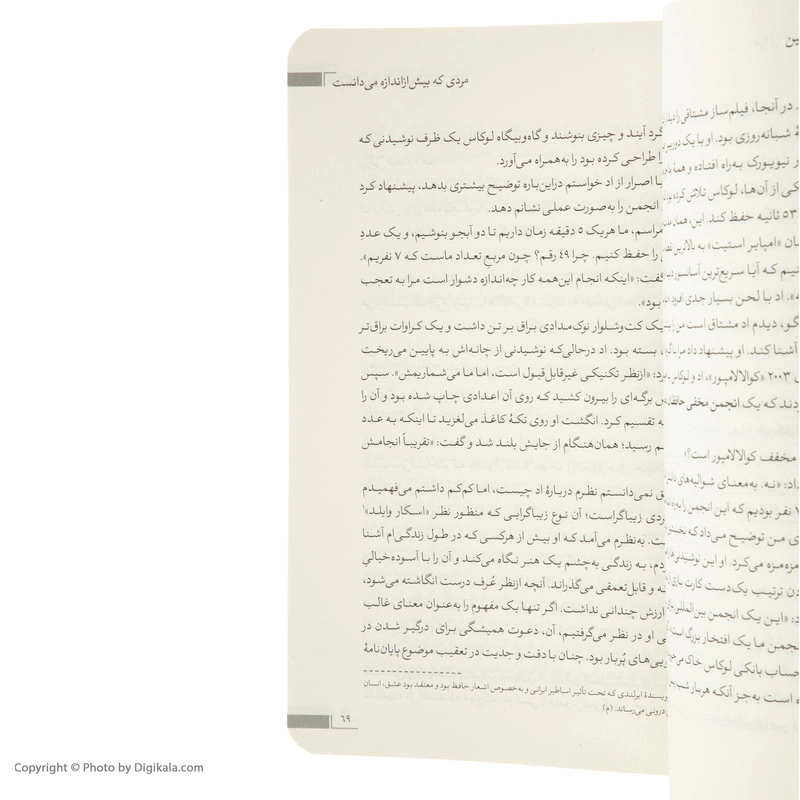 ین
. در آنجا، فیلم‌ساز مشتاقی را
ۀ شبانه‌روزی بود. او با یک
ر نیویورک به‌راه افتاده و همۀ
کی از آن‌ها، لوکاس تلاش کرده بود
۵۳ ثانیه حفظ کند. این، همان
ان «امپایر استیت» به بالاترین
نیم که آیا سریع‌ترین آسانسور
ه». اد با لحن بسیار جدی افزود:
گو، دیدم اد مشتاق است من
آشنا کند. او پیشنهاد داد مرا
۲۰۰۳ «کوالالامپور»، اد و لوکاس
ردند که یک انجمن مخفی
مخفف کوالالامپور است؟»
داد: «نه. به‌معنای شوالیه‌های
۷ نفر بودیم که این انجمن را
ی من توضیح می‌داد که
مزه‌مزه می‌کرد. او این نوشیدنی
دن ترتیب یک‌دست کارت بازی
د: «این یک انجمن بین‌المللی
نجمن ما یک افتخار بزرگ است
حساب بانکی لوکاس خاک می‌خورد
ه است به‌جز آنکه هر بار
مردی که بیش از اندازه می‌دانست
گرد آیند و چیزی بنوشند و گاه‌وبیگاه لوکاس یک ظرف نوشیدنی که
را طراحی کرده بود را به‌همراه می‌آورد.
با اصرار از اد خواستم دراین‌باره توضیح بیشتری بدهد، پیشنهاد کرد
انجمن را به‌صورت عملی نشانم دهد.
مراسم، ما هریک ۵ دقیقه زمان داریم تا دو آبجو بنوشیم، و یک عددِ
را حفظ کنیم. چرا ۴۹ رقم؟ چون مربعِ تعداد ماست که ۷ نفریم».
گفت: «اینکه انجام این‌همه کار چه‌اندازه دشوار است مرا به تعجب
بود».
یک کت‌وشلوار نوک‌مدادی براق بر تن داشت و یک کراوات براق‌تر
بسته بود. اد درحالی‌که نوشیدنی از چانه‌اش به پایین می‌ریخت
رد: «ازنظر تکنیکی غیرقابل‌قبول است، اما ما می‌شماریمش». سپس
ش برگه‌ای را بیرون کشید که روی آن اعدادی چاپ شده بود و آن را
ه تقسیم کرد. انگشت او روی تکۀ کاغذ می‌لغزید تا اینکه به عدد
م رسید؛ همان‌هنگام از جایش بلند شد و گفت: «تقریباً انجامش
ق نمی‌دانستم نظرم دربارۀ اد چیست، اما کم‌کم داشتم می‌فهمیدم
ردی زیباگراست؛ آن نوع زیباگرایی که منظور نظر «اسکار وایلد»۱
ت. به‌نظرم می‌آمد که او بیش از هرکسی که در طول زندگی‌ام آشنا
دم، به زندگی به‌چشم یک هنر نگاه می‌کند و آن را با آسوده‌خیالیِ
ه و قابل‌تعمقی می‌گذراند. آنچه ازنظر عُرف درست انگاشته می‌شود،
ارزش چندانی نداشت. اگر تنها یک مفهوم را به‌عنوان معنای غالب
ی او در نظر می‌گرفتیم، آن، دعوت همیشگی برای درگیر شدن در
یی‌های پُربار بود. چنان با دقت و جدیت در تعقیب موضوع پایان‌نامۀ
ویسندۀ ایرلندی که تحت تأثیر اساطیر ایرانی و به‌خصوص اشعار حافظ بود و معتقد بود عشق، انسان
درونی می‌رساند. (م)
۶۹
Copyright © Photo by Digikala.com